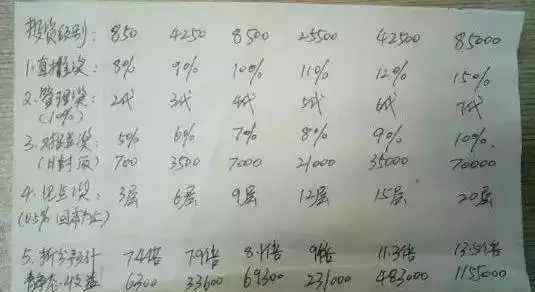 投资级别: 850 4250 8500 25500 42500 85000
1.直推奖: 8% 9% 10% 11% 12% 15%
2.管理奖: 2代 3代 4代 5代 6代 7代
(10%)
3.对碰奖 5% 6% 7% 8% 9% 10%
(日封顶) 700 3500 7000 21000 35000 70000
4.见点奖: 3层 6层 9层 12层 15层 20层
5. 7.4倍 7.9倍 8.1倍 9倍 11.3倍 13.5倍
静态收益 6300 33600 69300 231000 483000 1155000